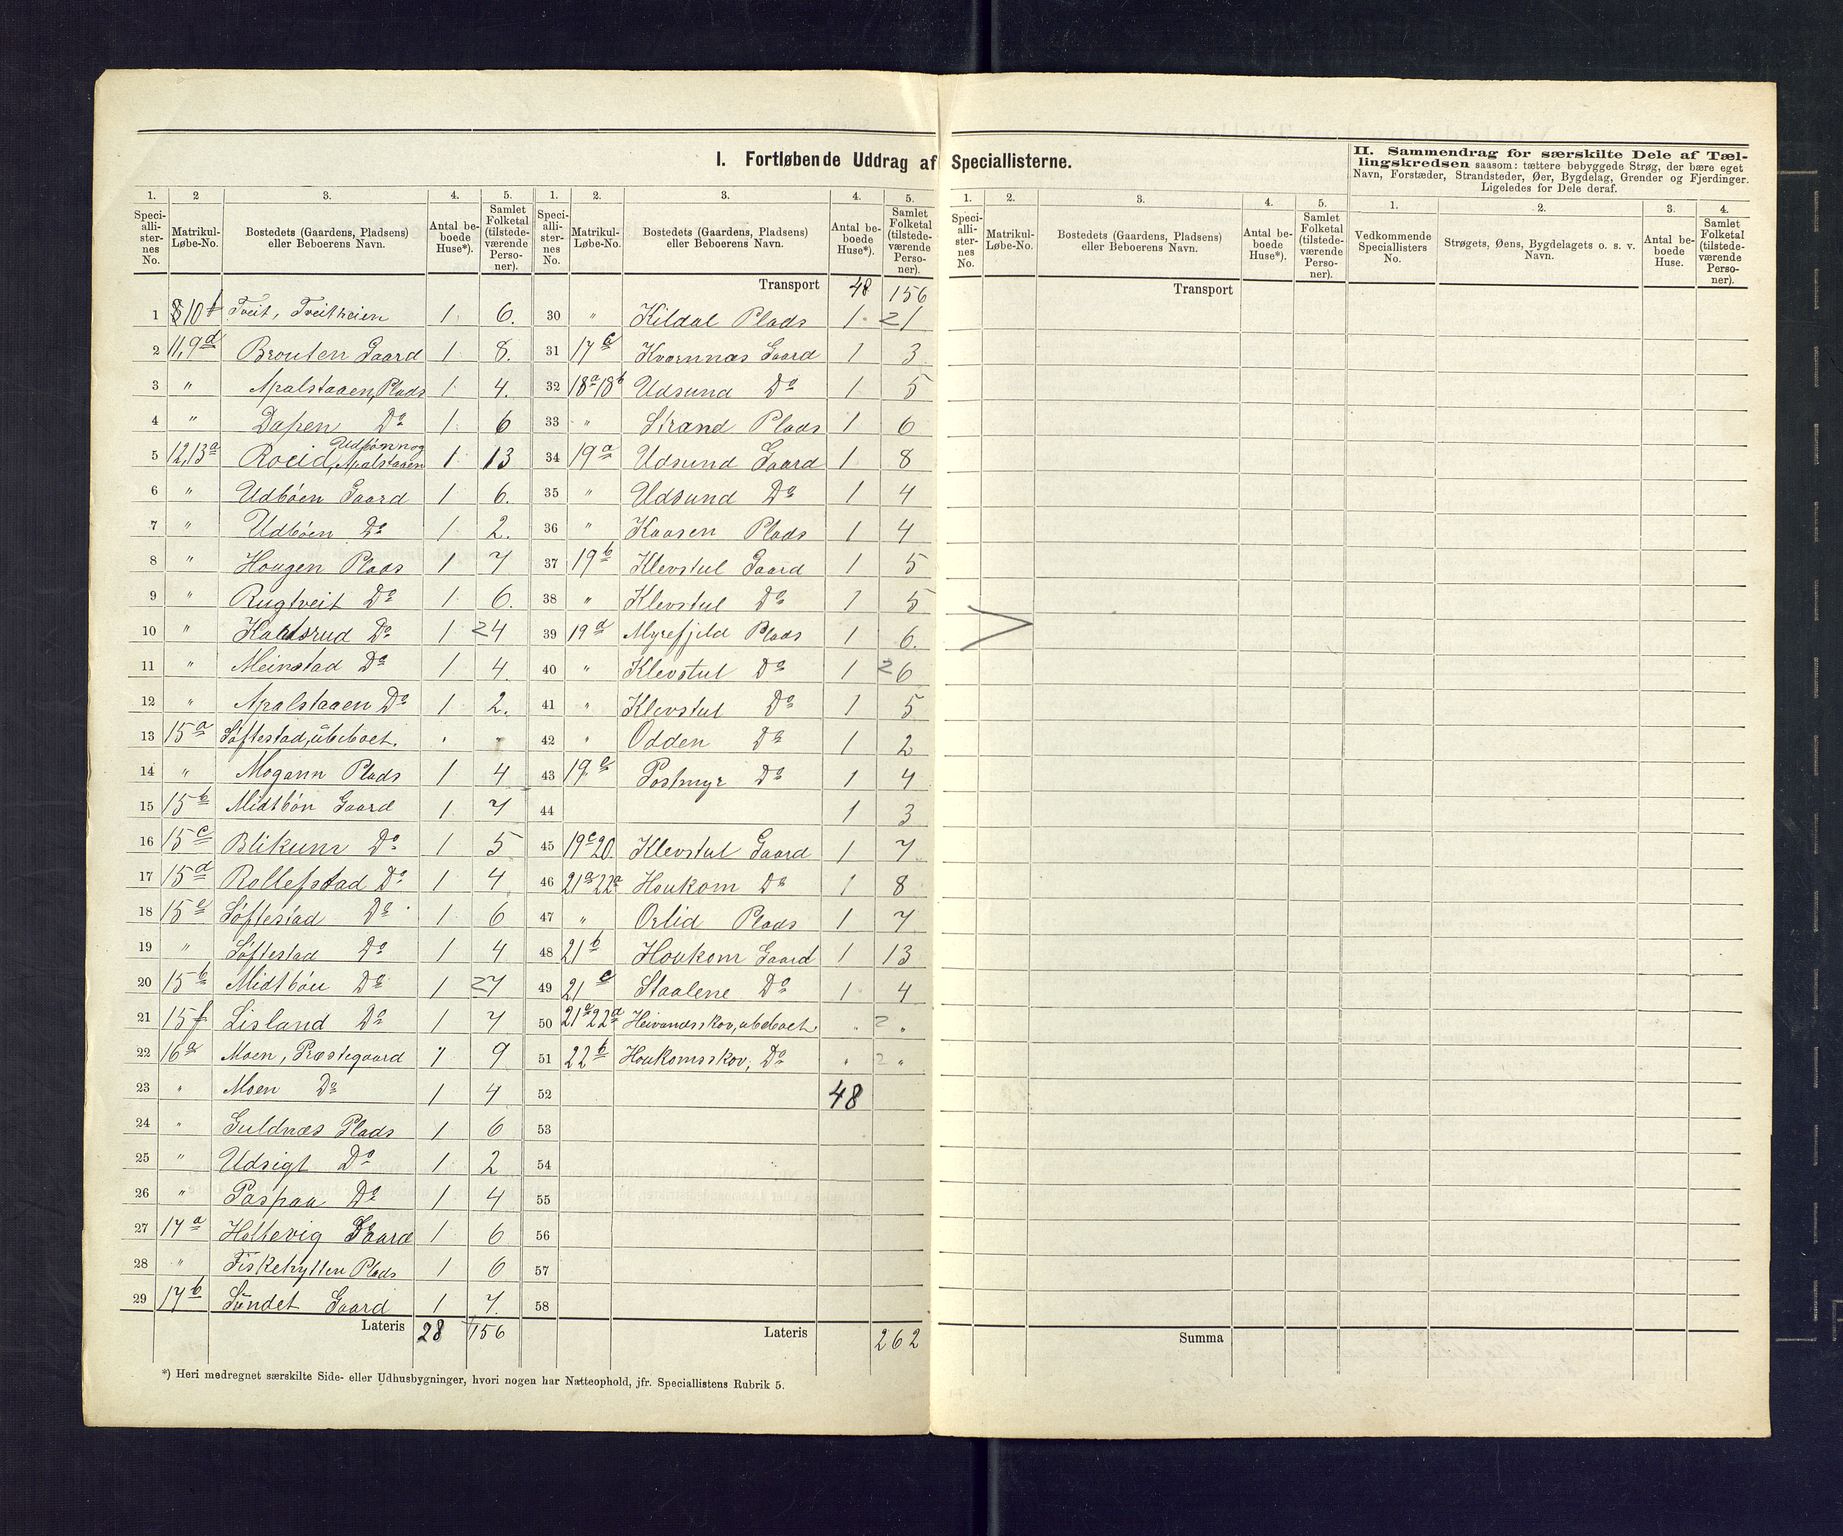 I. Fortløbende Uddrag af Speciallisterne.
II. Sammendrag for særskilte Dele af Tæl-
lingskredsen saasom: tættere bebyggede Strøg, der bære eget
Navn, Forstæder, Strandsteder, Øer, Bygdelag, Grender og Fjerdinger.
Ligeledes for Dele deraf.
1. 2 3. 4. 5. 1. 2. 3. 4. 5. 1. 2. 3. 4. 5. 1. 2. 3. 4.
Speci-alli-ster-nes No. Matrikul-Løbe-No. Bostedets (Gaardens, Pladsens) eller Beboerens Navn. Antal be-boede Huse*). Samlet Folketal (tilstede-værende Perso-ner).
Speci-alli-ster-nes No. Matrikul-Løbe-No. Bostedets (Gaardens, Pladsens) eller Beboerens Navn. Antal be-boede Huse*). Samlet Folketal (tilstede-værende Perso-ner).
Speci-alli-ster-nes No. Matrikul-Løbe-No. Bostedets (Gaardens, Pladsens) eller Beboerens Navn. Antal be-boede Huse*). Samlet Folketal (tilstede-værende Perso-ner).
Vedkommende Speciallisters No. Strøgets, Øens, Bygdelagets o. s. v. Navn. Antal be-boede Huse. Samlet Folketal (tilstede-værende Perso-ner).
1 10b Tveit, Tveitheien 1 6.
2 11,9d Brouten Gaard 1 8.
3 " Apalstaaen, Plads 1 4.
4 " Dapen Do 1 6
5 12,13a Roeid, Udbøen og Apalstaaen 1 13
6 " Udbøen Gaard 1 6.
7 " Udbøen Do 1 2.
8 " Hougen Plads 1 7
9 " Rugtveit Do 1 6.
10 " Kaatsrud Do 1 24
11 " Meinstad Do 1 4.
12 " Apalstaaen Do 1 2.
13 15a Søftestad, ubeboet. " "
14 " Mogann Plads 1 4
15 15b Midtbøn Gaard 1 7
16 15c Blikum Do 1 5
17 15d Rollefstad Do 1 4
18 15e Søftestad Do 1 6
19 " Søftestad Do 1 4
20 15b Midtbøn Do 1 27
21 15f Lisland Do 1 7
22 16a Moen, Præstegaard 1 9
23 " Moen Do 1 4
24 " Guldnæs Plads 1 6
25 " Udsigt Do 1 2
26 " Paspaa Do 1 4
27 17a Holtevig Gaard 1 6
28 " Fiskehytten Plads 1 6
29 17b Sundet Gaard 1 7.
Lateris 28 156
Transport 48 156
30 " Kildal Plads 1 21
31 17c Kvornnæs Gaard 1 3
32 18a18b Udsund Do 1 5
33 " Strand Plads 1 6
34 19a Udsund Gaard 1 8
35 " Udsund Do 1 4
36 " Kaasen Plads 1 4
37 19b Klevstul Gaard 1 5
38 " Klevstul Do 1 5
39 19d Myrefjeld Plads 1 6.
40 " Klevstul Do 1 26
41 " Klevstul Do 1 5
42 " Odden Do 1 2
43 19e Postmyr Do 1 4
44 1 3
45 19c20. Klevstul Gaard 1 7
46 21a22a Houkom Do 1 8
47 " Orlid Plads 1 7
48 21b Houkom Gaard 1 13
49 21c Staalene Do 1 4
50 21a22a Heivandsskov, ubeboet " 2 "
51 22b Houkomsskov, Do " 2 "
52 48
53
54
55
56
57
58
Lateris 262
Transport
Summa
*) Heri medregnet særskilte Side- eller Udhusbygninger, hvori nogen har Natteophold, jfr. Speciallistens Rubrik 5.